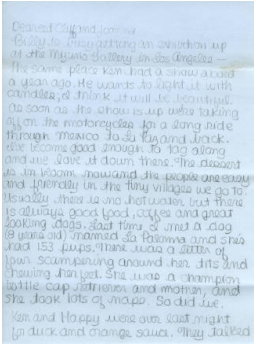 Dearest Clyf and
Billy is busy getting an exhibition up
at the Mizuno Gallery in Los Angeles -
The same place Ken had a show about
a year ago. He wants to light it with
candles, I think it will be beautiful.
As soon as the show is up we're taking
off on the motorcycles for a long ride
through Mexico to La Paz and back.
I've become good enough to tag along
and we love it down there. The desert
is in bloom now and the people are easy
and friendly in the tiny villages we go to
Usually there is no hot water but there
is always good food, coffee and great
looking dogs. Last time I met a dog
(9 years old) named La Paloma and she's
had 153 pups. There was a litter of
four scampering around her tits and
chewing her feet. She was a champion
bottle cap retriever and mother, and
she took lots of naps. So did we.
Ken and Happy were over last night
for duck and orange sauce. They talked